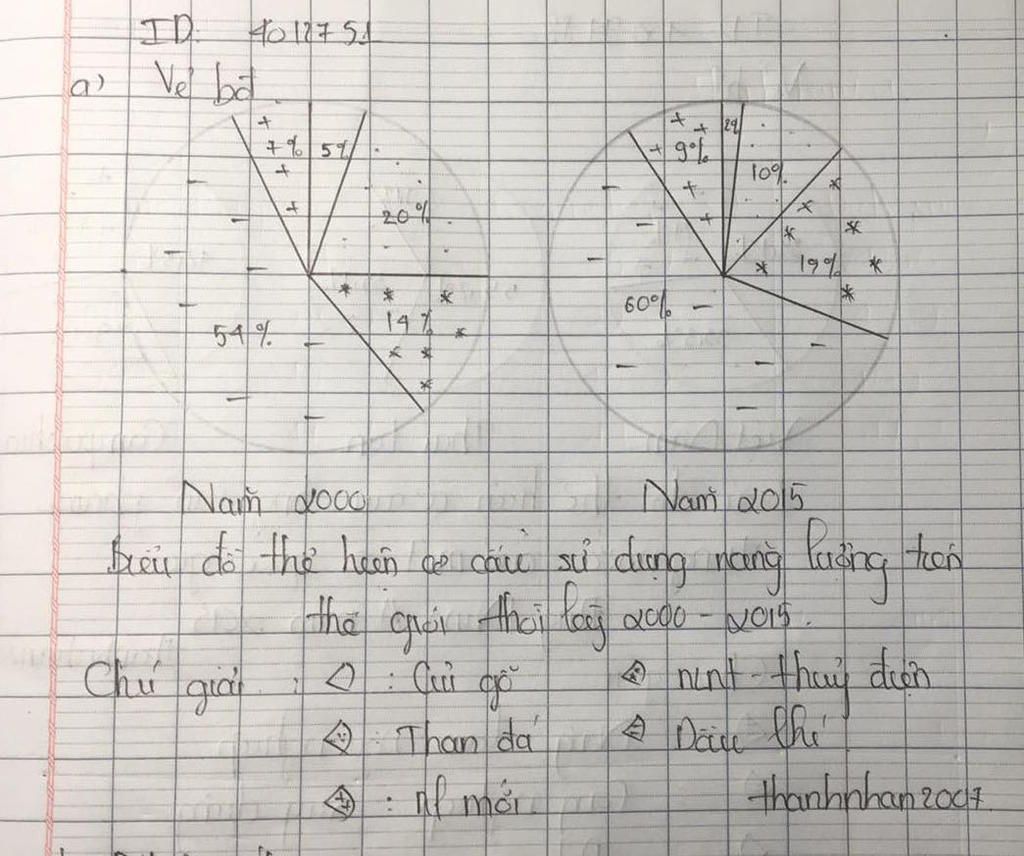 ID: 4012751
a) Vẽ bđ
7% 5% 20% 14% 54%
9% 2% 10% 19% 60%
Năm 2000 Năm 2015
Biểu đồ thể hiện cơ cấu sử dụng năng lượng trên
thế giới thời kỳ 2000 - 2015.
Chú giải : : Củi gỗ nLnt - thuỷ điện
: Than đá Dầu khí
: nl mới thanhnhan2007